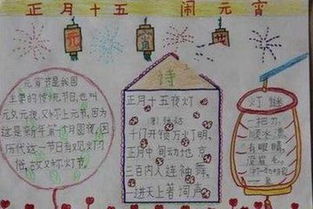 正月十五 闹元宵
元宵节是我国
主要的传统节日,也叫
元夕、元夜,又称上元节,因为
这是新年第一个月圆夜,因
历代这一节日有观灯习
俗,故又称灯节。
诗
正月十五夜灯
十门开锁万灯明,
正月中旬动地京。
三百内人连袖舞,
一进天上著词声。
灯谜
一把刀,
顺水漂,
有眼睛,
没眉毛。